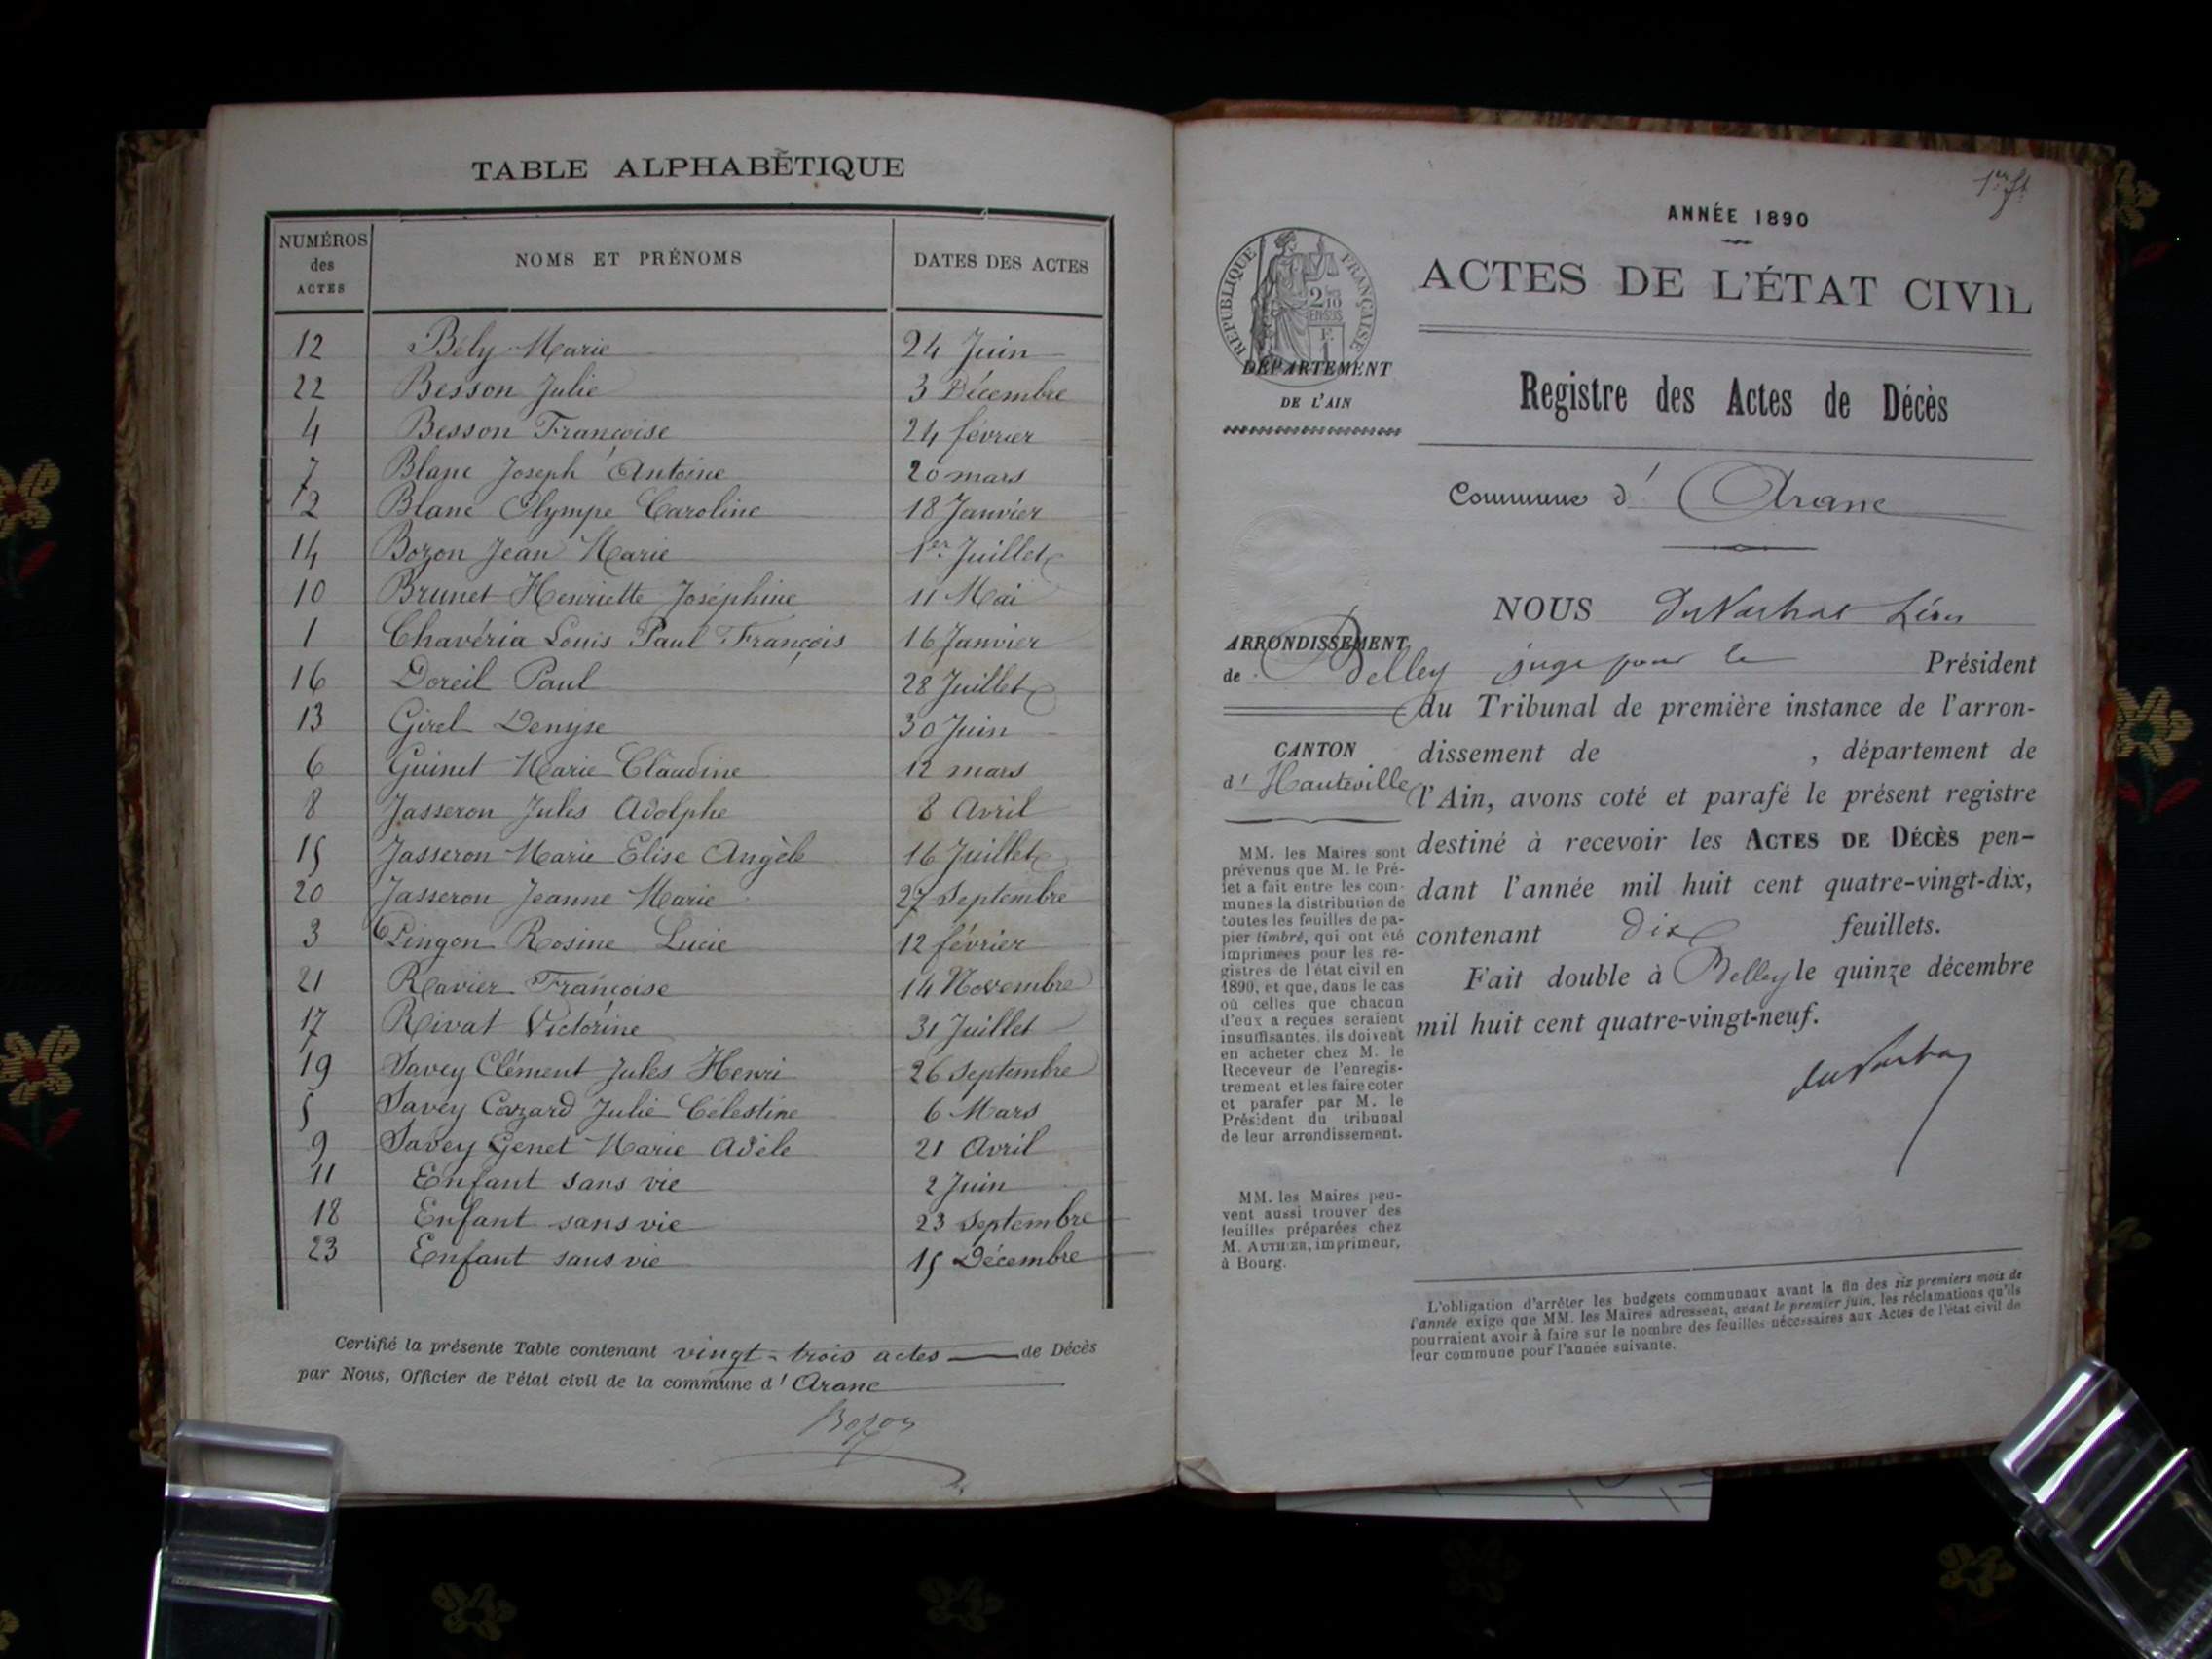 TABLE ALPHABÉTIQUE
NUMÉROS des ACTES NOMS ET PRÉNOMS DATES DES ACTES
12 Bély Marie 24 Juin
22 Besson Julie 3 Décembre
4 Besson Françoise 24 février
7 Blanc Joseph Antoine 20 mars
2 Blanc Olympe Caroline 18 Janvier
14 Bozon Jean Marie 1er Juillet
10 Brunet Henriette Joséphine 11 Mai
1 Chavéria Louis Paul François 16 Janvier
16 Doreil Paul 28 Juillet
13 Girel Denyse 30 Juin
6 Guinet Marie Claudine 12 mars
8 Jasseron Jules Adolphe 8 Avril
15 Jasseron Marie Elise Angèle 16 Juillet
20 Jasseron Jeanne Marie 27 Septembre
3 Pingon Rosine Lucie 12 février
21 Ravier Françoise 14 Novembre
17 Rivat Victorine 31 Juillet
19 Savey Clément Jules Henri 26 Septembre
5 Savey Cazard Julie Célestine 6 Mars
9 Savey Genet Marie Adèle 21 Avril
11 Enfant sans vie 2 Juin
18 Enfant sans vie 23 Septembre
23 Enfant sans vie 15 Décembre
Certifié la présente Table contenant vingt-trois actes de Décès
par Nous, Officier de l'état civil de la commune d'Aranc
Bozon
ANNÉE 1890
RÉPUBLIQUE FRANÇAISE
ACTES DE L'ÉTAT CIVIL
DÉPARTEMENT
DE L'AIN
Registre des Actes de Décès
Commune d'Aranc
NOUS Léon
ARRONDISSEMENT
de Belley
juge pour le Président
du Tribunal de première instance de l'arron-
dissement de , département de
CANTON
d'Hauteville
l'Ain, avons coté et parafé le présent registre
destiné à recevoir les ACTES DE DÉCÈS pen-
dant l'année mil huit cent quatre-vingt-dix,
contenant dix feuillets.
Fait double à Belley le quinze décembre
mil huit cent quatre-vingt-neuf.
MM. les Maires sont
prévenus que M. le Pré-
fet a fait entre les com-
munes la distribution de
toutes les feuilles de pa-
pier timbré, qui ont été
imprimées pour les re-
gistres de l'état civil en
1890, et que, dans le cas
où celles que chacun
d'eux a reçues seraient
insuffisantes, ils doivent
en acheter chez M. le
Receveur de l'enregis-
trement et les faire coter
et parafer par M. le
Président du tribunal
de leur arrondissement.
MM. les Maires peu-
vent aussi trouver des
feuilles préparées chez
M. AUTHIER, imprimeur,
à Bourg.
L'obligation d'arrêter les budgets communaux avant la fin des six premiers mois de
l'année exige que MM. les Maires adressent, avant le premier juin, les réclamations qu'ils
pourraient avoir à faire sur le nombre des feuilles nécessaires aux Actes de l'état civil de
leur commune pour l'année suivante.